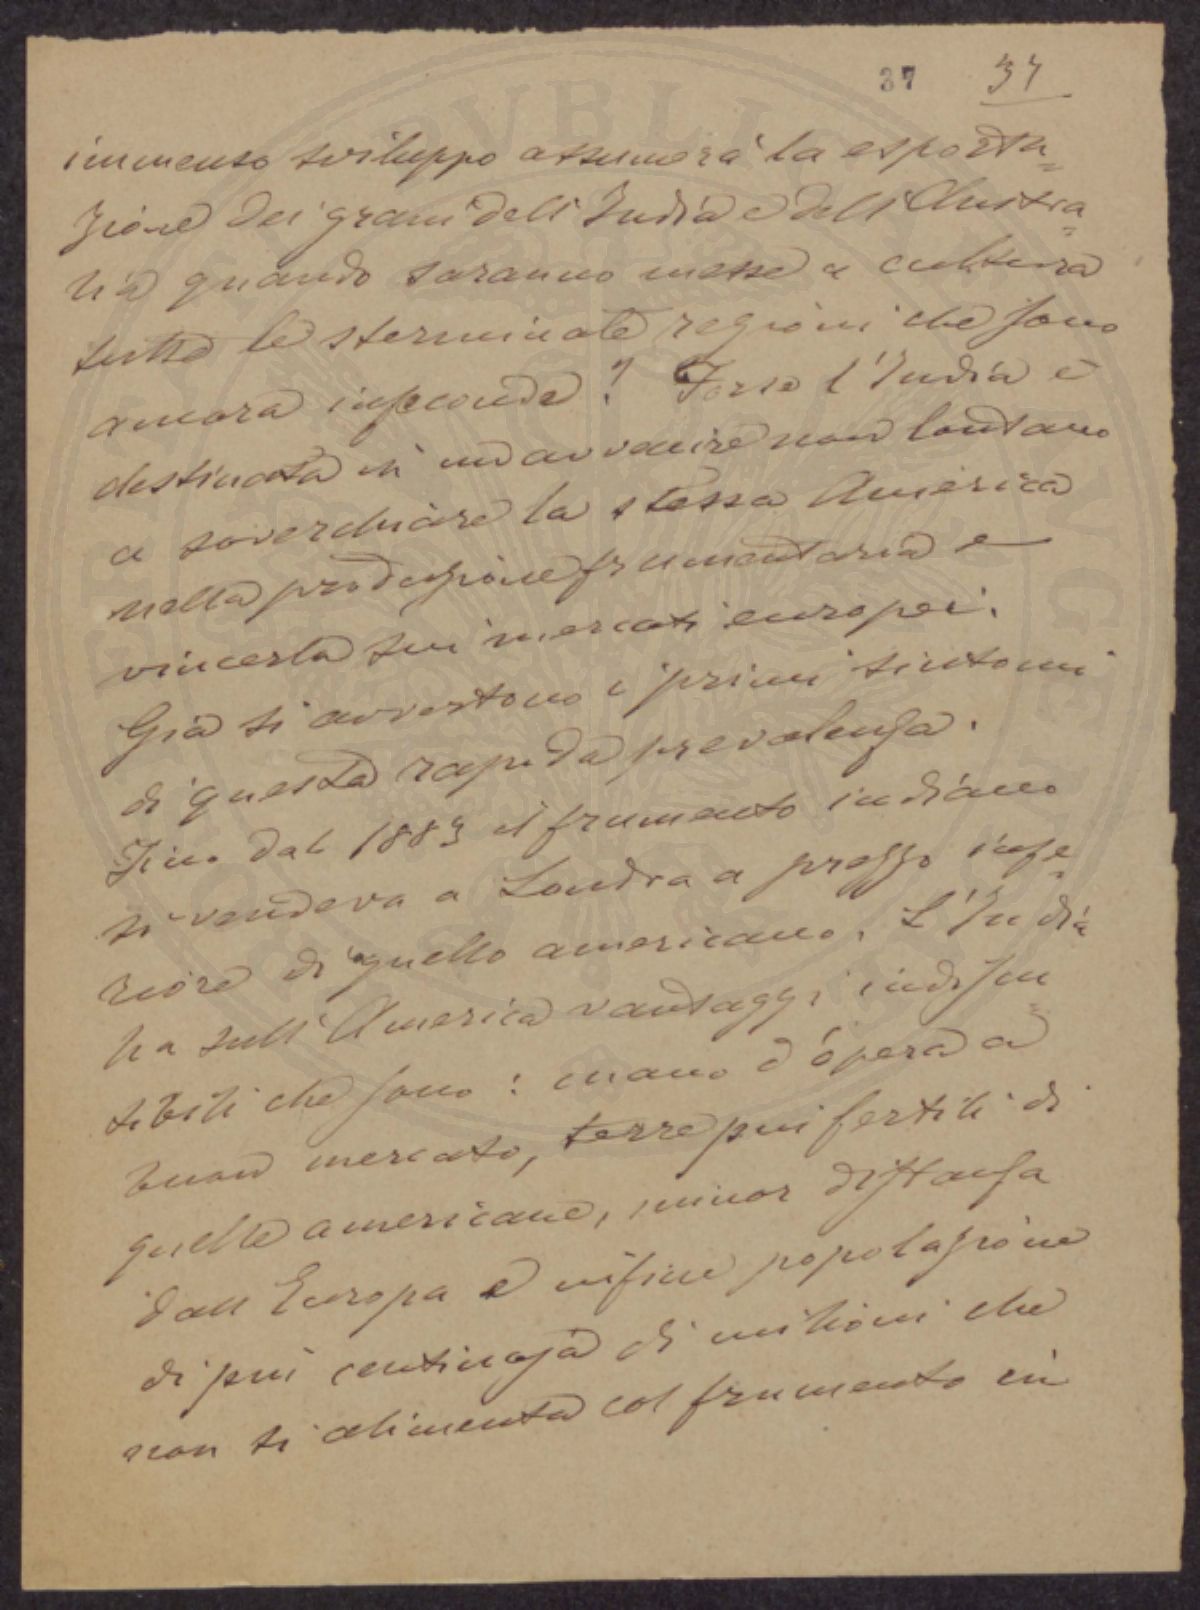 37 37
immenso sviluppo assumerà la esporta=
zione dei grani dell'India e dell'Austra=
lia quando saranno messe a cultura
tutte le sterminate regioni che sono
ancora infeconde? Forse l'India è
destinata in un avvenire non lontano
a soverchiare la stessa America
nella produzione frumentaria e
vincerla sui mercati europei.
Già si avvertono i primi sintomi
di questa rapida prevalenza.
Fino dal 1883 il frumento indiano
si vendeva a Londra a prezzo infe=
riore di quello americano. L'India
ha sull'America vantaggi indiscu=
tibili che sono: mano d'opera a
buon mercato, terre più fertili di
quelle americane, minor distanza
dall'Europa e infine popolazione
di più centinaja di milioni che
non si alimenta col frumento in